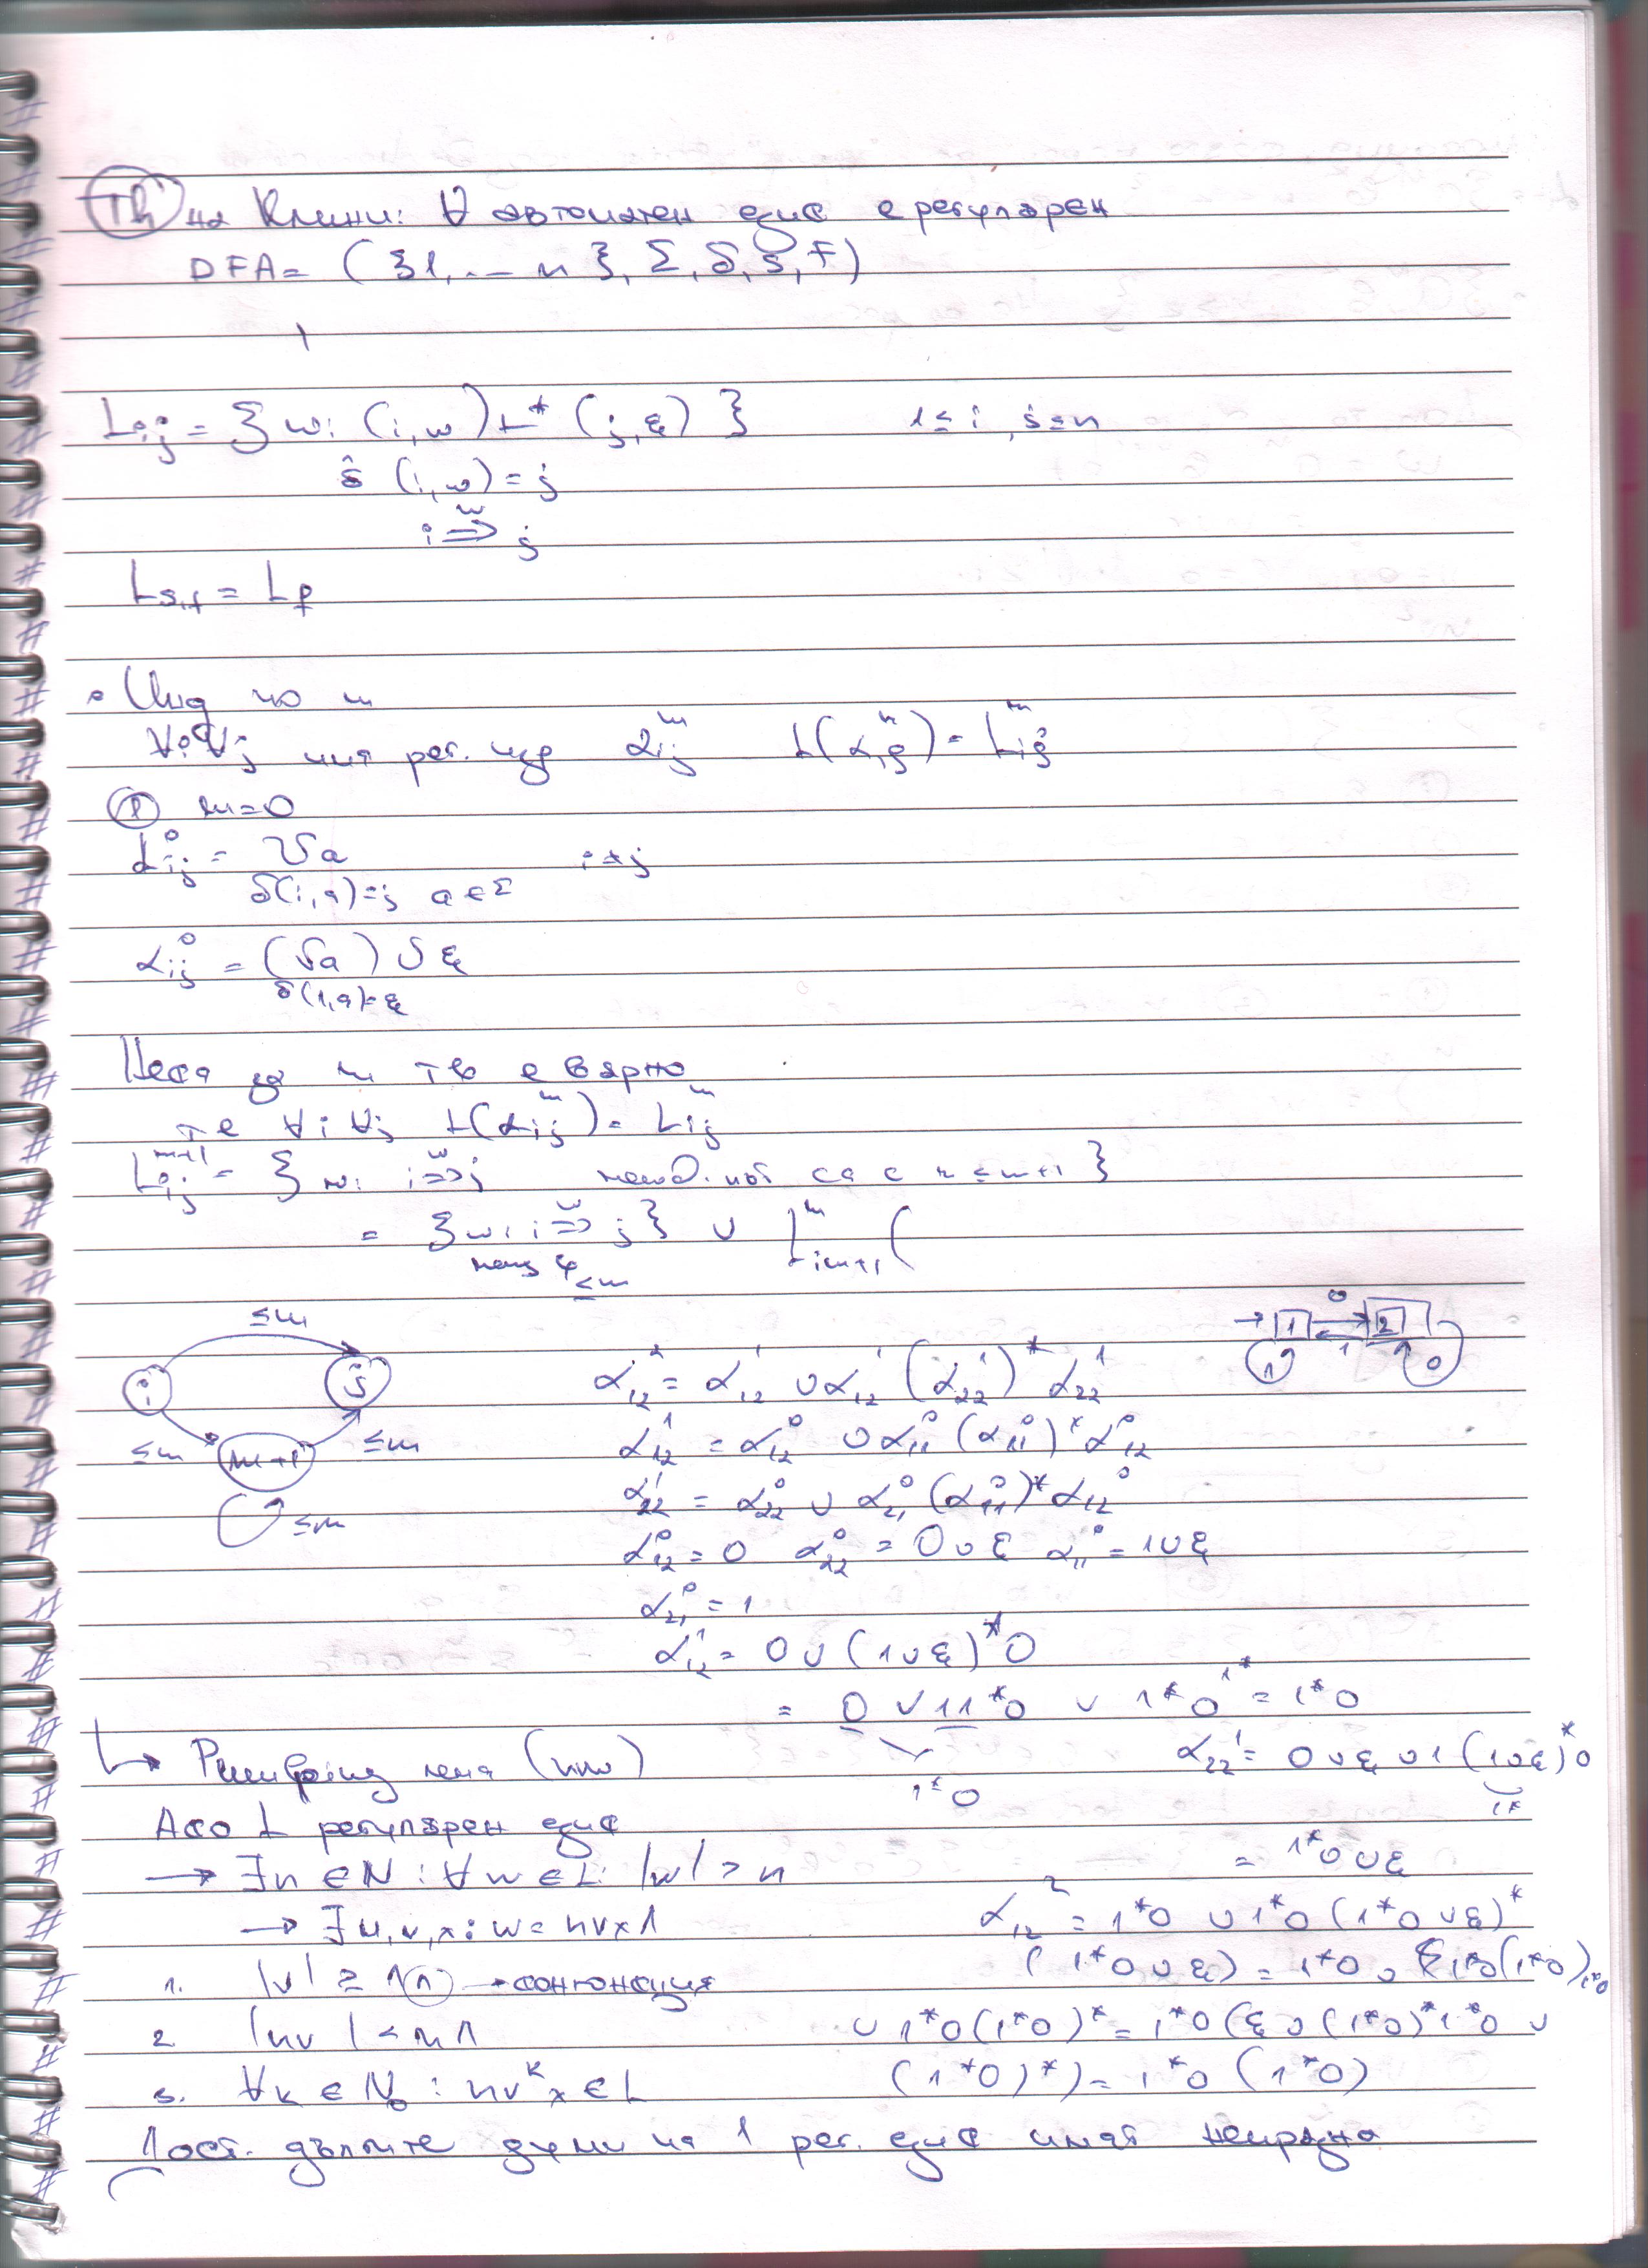 Th на Клини: ∀ автоматен език е регулярен
DFA = ({1, ... n}, Σ, δ, s, F)
Lij = { w: (i,w) ⊢* (j,ε) } 1 ≤ i, j ≤ n
δ̂ (i,w) = j
i ⇒ʷ j
Ls,f = Lf
• Инд по m
∀i ∀j има рег. изр αij^m L(αij^m) = Lij^m
① m=0
αij^0 = ∪a i≠j
δ(i,a)=j a∈Σ
αij^0 = (∪a) ∪ ε
δ(i,a)=ε
Нека за m тв е вярно
т.е ∀i ∀j L(αij^m) = Lij^m
Lij^m+1 = { w: i ⇒ʷ j са с ≤ m+1 }
= { w: i ⇒ʷ j } ∪ L^m i m+1 (
≤m
≤m
i j
≤m m+1 ≤m
≤m
→ 1 0 2
1 1 0
α12^2 = α12^1 ∪ α12^1 (α22^1)* α22^1
α12^1 = α12^0 ∪ α11^0 (α11^0)* α12^0
α22^1 = α22^0 ∪ α21^0 (α11^0)* α12^0
α12^0 = 0 α22^0 = 0 ∪ ε α11^0 = 1 ∪ ε
α21^0 = 1
α12^1 = 0 ∪ (1 ∪ ε)* 0
= 0 ∪ 11*0 ∪ 1*0 = 1*0
1*0
α22^1 = 0 ∪ ε ∪ 1 (1 ∪ ε)* 0
1*
= 1*0 ∪ ε
α12^2 = 1*0 ∪ 1*0 (1*0 ∪ ε)*
(1*0 ∪ ε) = 1*0 ∪ 1*0(1*0) 1*0
∪ 1*0(1*0)* = 1*0 (ε ∪ (1*0)* 1*0 ∪
(1*0)*) = 1*0 (1*0)
↳ лема (uvw)
Ако L регулярен език
→ ∃n ∈ N : ∀w ∈ L: |w| > n
→ ∃u,v,x : w = uvx ∧
1. |v| ≥ 1
2 |uv| < n ∧
3. ∀k ∈ N0 : uv^k x ∈ L
Дост. дългите думи на 1 рег. език имат